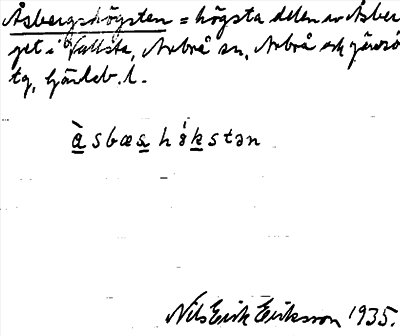 Åsbergshögsten = högsta delen av Åsber
get i Vallsta, Arbrå sn, Arbrå och Järvsö
tg, Gävleb. l.
àsbæs hökstən
Nils Erik Eriksson 1935.